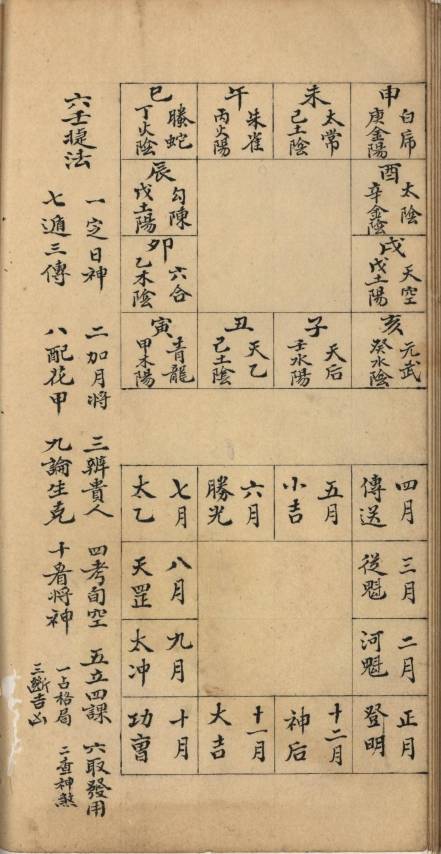 申
白虎
庚金陽
未
太常
己土陰
午
朱雀
丙火陽
巳
螣蛇
丁火陰
酉
太陰
辛金陰
辰
勾陳
戊土陽
戌
天空
戊土陽
卯
六合
乙木陰
亥
元武
癸水陰
子
天后
壬水陽
丑
天乙
己土陰
寅
青龍
甲木陽
四月
傳送
五月
小吉
六月
勝光
七月
太乙
三月
從魁
八月
天罡
二月
河魁
九月
太冲
正月
登明
十二月
神后
十一月
大吉
十月
功曹
六壬捷法
一定日神 二加月將 三辨貴人 四考旬空 五立四課 六取發用
七遁三傳 八配花甲 九論生克 十看將神
一占格局 二查神煞
三斷吉凶